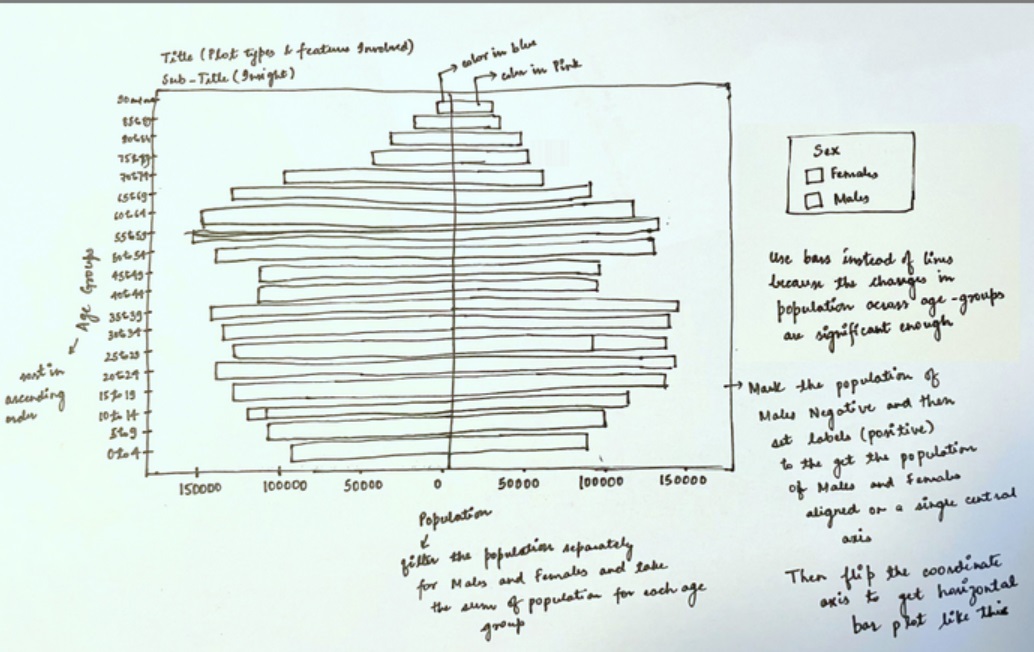 Title (Plot types & features Involved)
Sub-Title (Insight)
color in blue
color in Pink
85to89
80to84
75to79
70to74
65to69
60to64
55to59
50to54
45to49
40to44
35to39
30to34
25to29
20to24
15to19
10to14
5to9
0to4
Age Groups
sort in
ascending
order
150000 100000 50000 0 50000 100000 150000
Population
filter the population separately
for Males and Females and take
the sum of population for each age
group
Sex
Females
Males
Use bars instead of lines
because the changes in
population across age-groups
are significant enough
Mark the population of
Males Negative and then
set labels (positive)
to the get the population
of Males and Females
aligned on a single central
axis
Then flip the coordinate
axis to get horizontal
bar plot like this